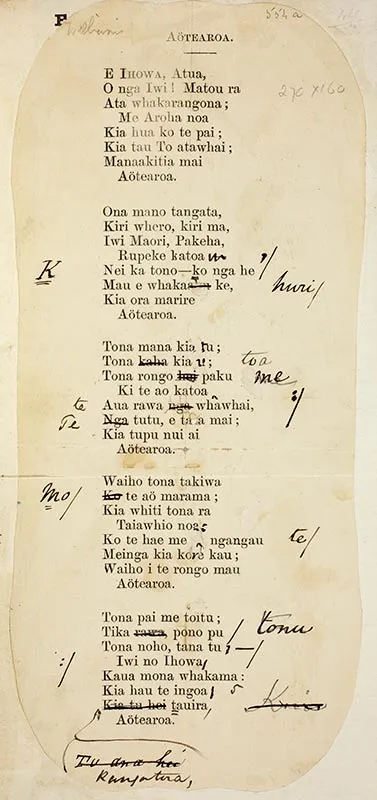 F
552a
AÖTEAROA.
270 x 160
E IHOWA, Atua,
O nga Iwi! Matou ra
Ata whakarangona;
Me Aroha noa
Kia hua ko te pai;
Kia tau To atawhai;
Manaakitia mai
Aötearoa.
Ona mano tangata,
Kiri whero, kiri ma,
Iwi Maori, Pakeha,
Rupeke katoa
K Nei ka tono—ko nga he
Mau e whakaa ke, huri/
Kia ora marire
Aötearoa.
Tona mana kia tu;
Tona kaha kia u; toa
Tona rongo hei paku me
Ki te ao katoa
te Aua rawa nga whawhai, :/
Te Nga tutu, e tata mai;
Kia tupu nui ai
Aötearoa.
Waiho tona takiwa
Mo/ Ko te aö marama;
Kia whiti tona ra
Taiawhio noa:
Ko te hae me ngangau te/
Meinga kia kore kau;
Waiho i te rongo mau
Aötearoa.
Tona pai me toitu;
Tika rawa, pono pu / tonu
Tona noho, tana tu
:/ Iwi no Ihowa,
Kaua mona whakama:
Kia hau te ingoa
Kia tu hei tauira,
Aötearoa.
Tu ana hei
Rangatira,